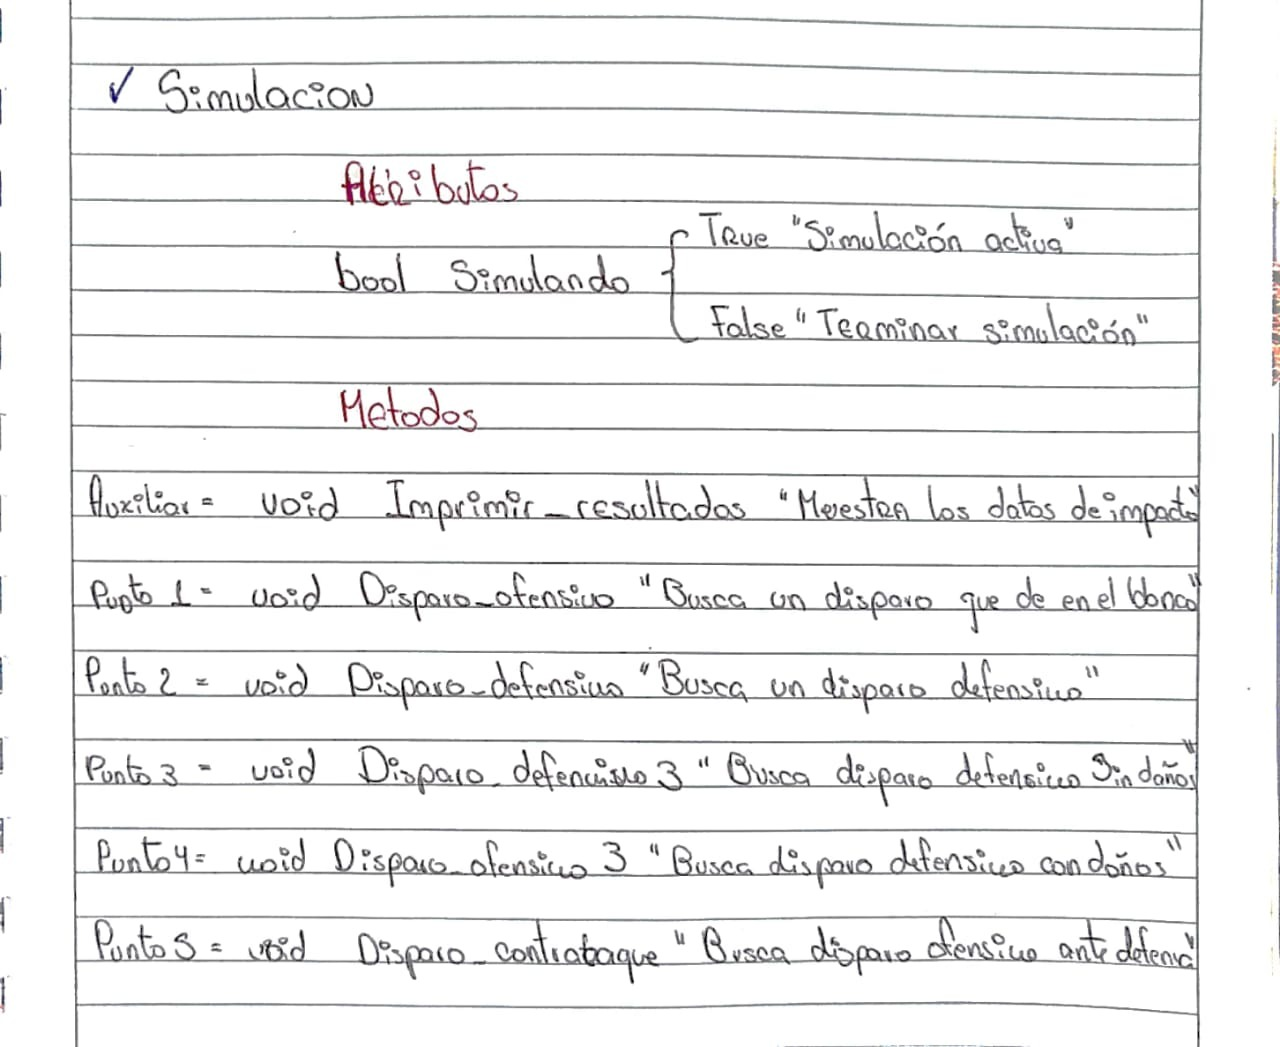 ✓ Simulacion
Atributos
True "Simulación activa"
bool Simulando
False "Terminar simulación"
Metodos
Auxiliar = void Imprimir_resultados "Muestra los datos de impacto"
Punto 1 = void Disparo_ofensivo "Busca un disparo que de en el blanco"
Punto 2 = void Disparo_defensivo "Busca un disparo defensivo"
Punto 3 = void Disparo_defencisvo 3 "Busca disparo defensivo Sin daños"
Punto 4 = void Disparo_ofensivo 3 "Busca disparo defensivo con daños"
Punto 5 = void Disparo_contrataque "Busca disparo ofensivo ante defensa"